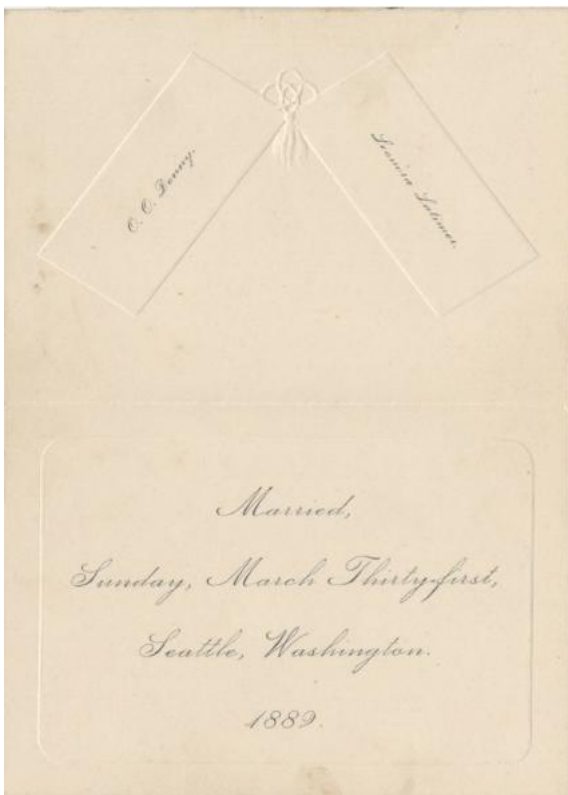 O. O. Denny.
Leonira Latimer.
Married,
Sunday, March Thirty-first,
Seattle, Washington.
1889.